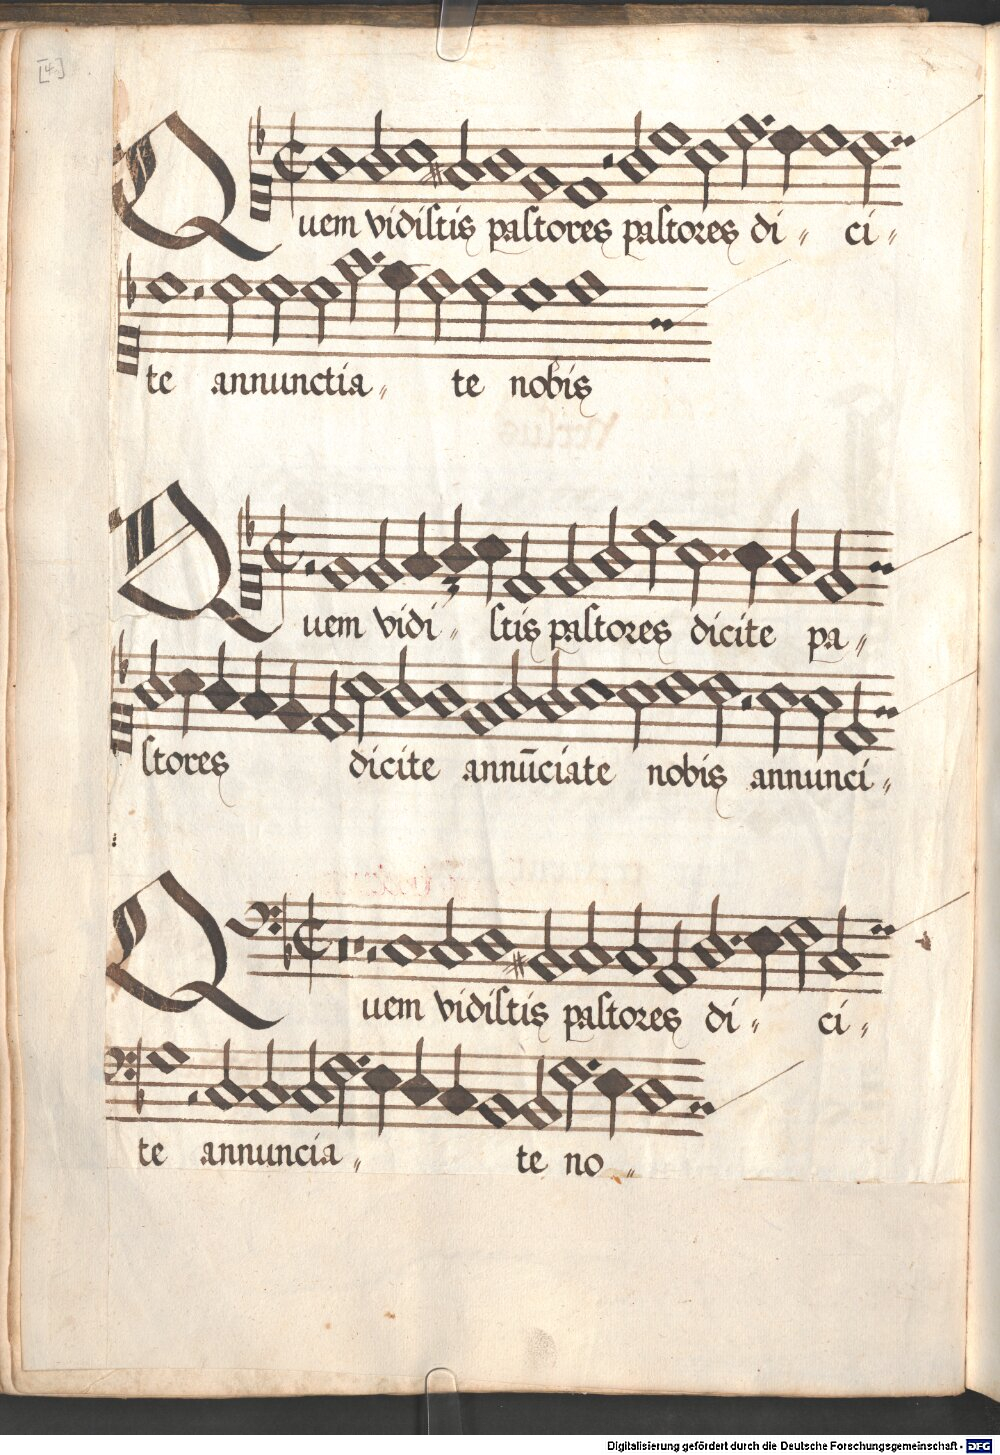 [4]
Quem vidistis pastores pastores di〃 ci〃
te annunctia〃 te nobis
Quem vidi〃 stis pastores dicite pa〃
stores dicite annūciate nobis annunci〃
Quem vidistis pastores di〃 ci〃
te annuncia〃 te no〃
Digitalisierung gefördert durch die Deutsche Forschungsgemeinschaft - DFG